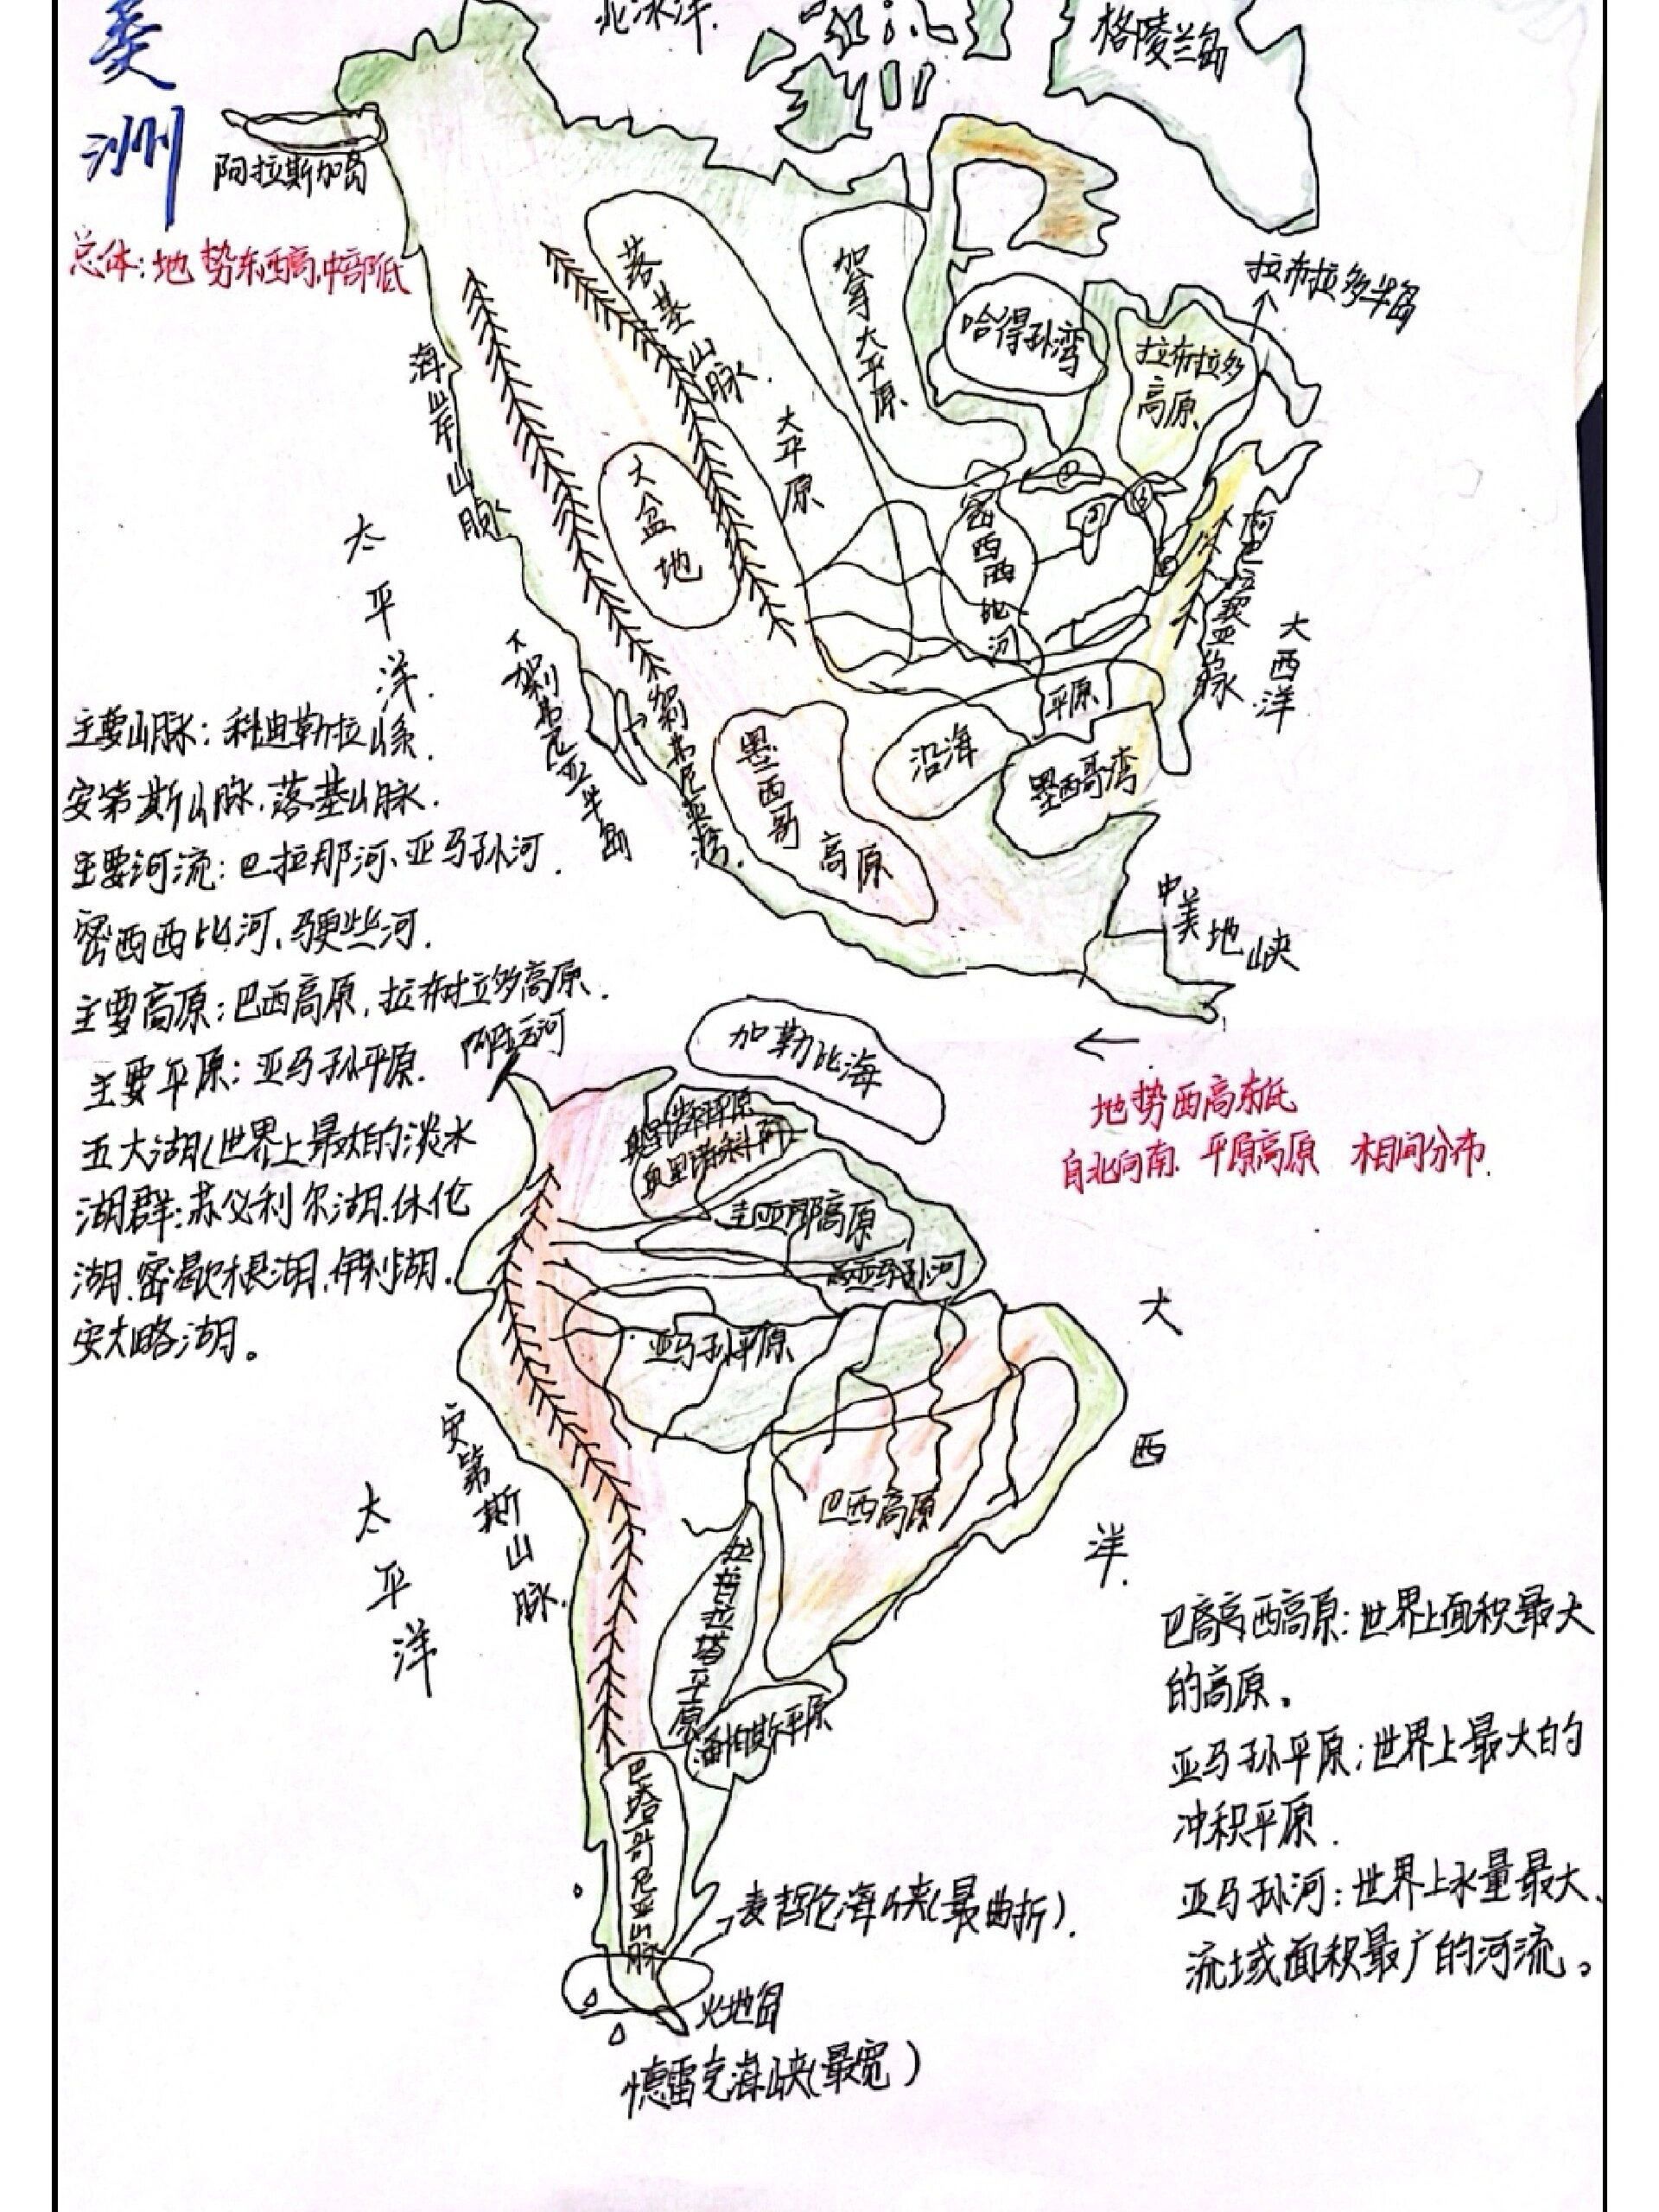 美洲
北冰洋.
格陵兰岛
阿拉斯加岛
总体:地势东西高,中部低
落基山脉.
加拿大平原.
哈得孙湾
拉布拉多半岛
拉布拉多
高原
海岸山脉
大平原
大盆地
密西西比河
平原
阿巴拉契亚山脉
大西洋
太平洋.
下加利福尼亚半岛
加利福尼亚湾.
墨西哥
高原
沿海
墨西哥湾
中美地峡
主要山脉:科迪勒拉山系.
安第斯山脉,落基山脉.
主要河流:巴拉那河、亚马孙河.
密西西比河、
主要高原:巴西高原,拉布拉多高原.
主要平原:亚马孙平原.
五大湖(世界上最大的淡水
湖群:苏必利尔湖.休伦
湖.密歇根湖.伊利湖.
安大略湖。
加勒比海
地势西高东低
自北向南 平原高原 相间分布.
圭亚那高原
亚马孙河
亚马孙平原
巴西高原
安第斯山脉.
太平洋
大西洋.
拉普拉塔平原
潘帕斯平原
巴塔哥尼亚山脉
麦哲伦海峡(最曲折).
火地岛
德雷克海峡(最宽)
西高原:世界上面积最大
的高原。
亚马孙平原:世界上最大的
冲积平原.
亚马孙河:世界上水量最大、
流域面积最广的河流。